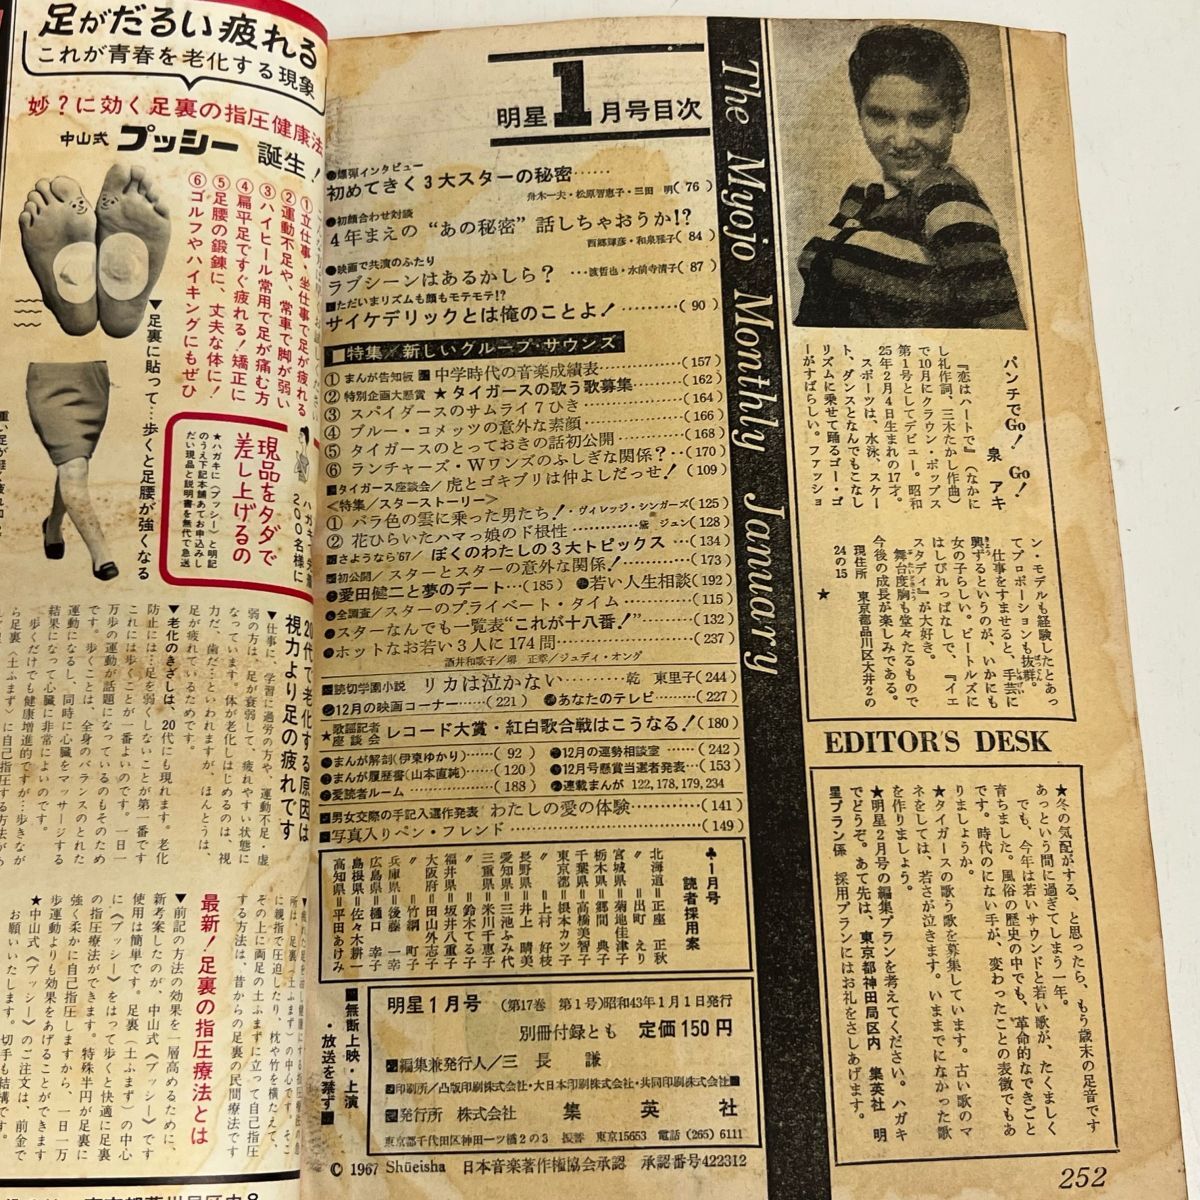 足がだるい疲れる
これが青春を老化する現象
妙?に効く足裏の指圧健康法
中山式 プッシー 誕生!
①立仕事・坐仕事で足が疲れる
②運動不足や、常車で脚が弱い
③ハイヒール常用で足が痛む方
④扁平足ですぐ疲れる!矯正に
⑤足腰の鍛錬に、丈夫な体に!
⑥ゴルフやハイキングにもぜひ
▼足裏に貼って…歩くと足腰が強くなる
現品をタダで
差し上げるの
★ハガキに《プッシー》と明記
のうえ下記本舗あてお申込みし
だい現品と説明書を無代で急送
20代で老化する原因は
視力より足の疲れです
▼仕事に、学習に過労の方や、運動不足・虚
弱の方は、足が衰弱して、疲れやすい状態に
なっています。体が老化しはじめるのは、視
力だ、歯だ…といわれますが、ほんとうは
足が疲れているためです。
▼老化のきざしは、20代にも現れます。老化
防止には…足を弱くしないことが第一番です
それには歩くことが一番よいのです。一日一
万歩の運動が話題になっているのもそのため
です。歩くことは、全身のバランスのとれた
運動になるし、同時に心臓をマッサージする
結果になって心臓に非常によいのです。
最新!足裏の指圧療法とは
▼前記の方法の効果を一層高めるために、
新考案したのが、中山式《プッシー》です
使用は簡単です。足裏(土ふまず)の中心
に《プッシー》をはって歩くと快適に足裏
の指圧療法ができます。特殊半円が足裏に
強く柔かに自己指圧しますから、一日一万
歩運動よりも効果をあげることができます
★中山式《プッシー》のご注文は、前金で
お願いいたします。切手も結構です。
明星1月号目次
The Myojo Monthly January
●爆弾インタビュー
初めてきく3大スターの秘密……
舟木一夫・松原智恵子・三田 明(76)
●初顔合わせ対談
4年まえの“あの秘密”話しちゃおうか!?
西郷輝彦・和泉雅子(84)
●映画で共演のふたり
ラブシーンはあるかしら?…渡哲也・水前寺清子(87)
■ただいまリズムも顔もモテモテ!?
サイケデリックとは俺のことよ!………(90)
■特集/新しいグループ・サウンズ
①まんが告知板 中学時代の音楽成績表………(157)
②特別企画大懸賞 ★タイガースの歌う歌募集………(162)
③スパイダースのサムライ7ひき………(164)
④ブルー・コメッツの意外な素顔………(166)
⑤タイガースのとっておきの話初公開………(168)
⑥ランチャーズ・Wワンズのふしぎな関係?…(170)
■タイガース座談会/虎とゴキブリは仲よしだっせ!(109)
<特集/スターストーリー>
①バラ色の雲に乗った男たち!・ヴィレッジ・シンガーズ(125)
②花ひらいたハマっ娘のド根性………黛 ジュン(128)
■さようなら'67/ぼくのわたしの3大トピックス…(134)
■初公開/スターとスターの意外な関係!………(173)
●愛田健二と夢のデート…(185) ●若い人生相談(192)
●全調査/スターのプライベート・タイム………(115)
●スターなんでも一覧表“これが十八番!”……(132)
●ホットなお若い3人に174問………(237)
酒井和歌子/堺 正章/ジュディ・オング
■読切学園小説 リカは泣かない………乾 東里子(244)
●12月の映画コーナー……(221) ●あなたのテレビ……(227)
★歌謡記者座談会 レコード大賞・紅白歌合戦はこうなる!(180)
●まんが解剖(伊東ゆかり)……(92) ●12月の運勢相談室……(242)
●まんが履歴書(山本直純)……(120) ●12月号懸賞当選者発表…(153)
●愛読者ルーム………(188) ●連載まんが 122,178,179,234
■男女交際の手記入選作発表 わたしの愛の体験………(141)
■写真入りペン・フレンド………(149)
♣1月号
読者採用案
北海道=正座 正秋
〃=出町 えり
宮城県=菊地佳津子
栃木県=郷間 典子
千葉県=高橋美智子
東京都=根本カツ子
〃=上村 好枝
長野県=井上 晴美
愛知県=三池ふみ代
三重県=米川千恵子
〃=鈴木てる子
福井県=坂井八重子
大阪府=田山外志子
〃=竹綱 町子
兵庫県=後藤 一幸
広島県=樋口 幸子
島根県=佐々木耕一
高知県=平田あけみ
■無断上映・上演
・放送を禁ず■
明星1月号(第17巻 第1号)昭和43年1月1日発行
別冊付録とも 定価150円
編集兼発行人/三 長 謙
印刷所/凸版印刷株式会社・大日本印刷株式会社・共同印刷株式会社
発行所 株式会社 集英社
東京都千代田区神田一ツ橋2の3 振替 東京15653 電話(265)6111
© 1967 Shūeisha 日本音楽著作権協会承認 承認番号422312
パンチでGo! Go!
泉 アキ
『恋はハートで』(なかに
し礼作詞、三木たかし作曲)
で10月にクラウン・ポップス
第1号としてデビュー。昭和
25年2月4日生まれの17才。
スポーツは、水泳、スケー
ト、ダンスとなんでもこなし
リズムに乗せて踊るゴー・ゴ
ーがすばらしい。ファッショ
ン・モデルも経験したとあっ
てプロポーションも抜群。
仕事をすませると、手芸に
興ずるというのが、いかにも
女の子らしい。ビートルズに
はしびれっぱなしで、『イェ
スタディ』が大好き。
舞台度胸も堂々たるもので
今後の成長が楽しみである。
現住所 東京都品川区大井2の
24の15
★
EDITOR'S DESK
★冬の気配がする、と思ったら、もう歳末の足音です
あっという間に過ぎてしまう一年。
でも、今年は若いサウンドと若い歌が、たくましく
育ちました。風俗の歴史の中でも、革命的なできごと
です。時代のにない手が、変わったことの表徴でもあ
りましょうか。
★タイガースの歌う歌を募集しています。古い歌のマ
ネをしては、若さが泣きます。いままでになかった歌
を作りましょう。
★明星2月号の編集プランを考えてください。ハガキ
でどうぞ。あて先は、東京都神田局区内 集英社 明
星プラン係 採用プランにはお礼をさしあげます。
252